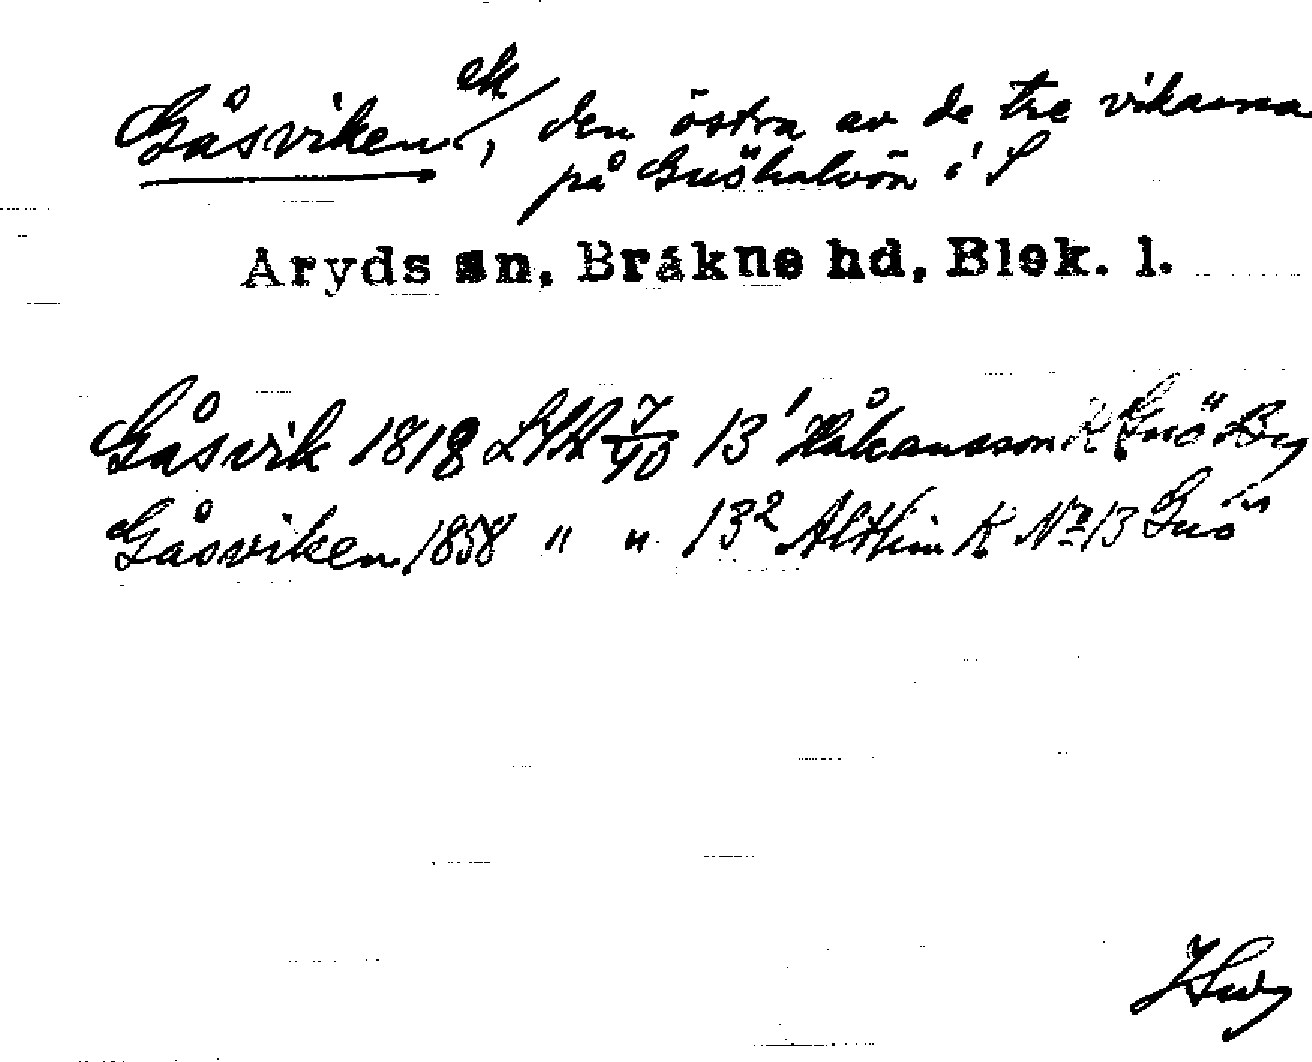 Gåsviken ek/, den östra av de tre vikarna
på Gnöhalvön i S
Aryds sn, Bräkne hd, Blek. l.
Gåsvik 1818 LSA 7/10 13¹ Håkansson K Gnö By
Gåsviken 1858 " " 13² Althin K No 13 Gnö